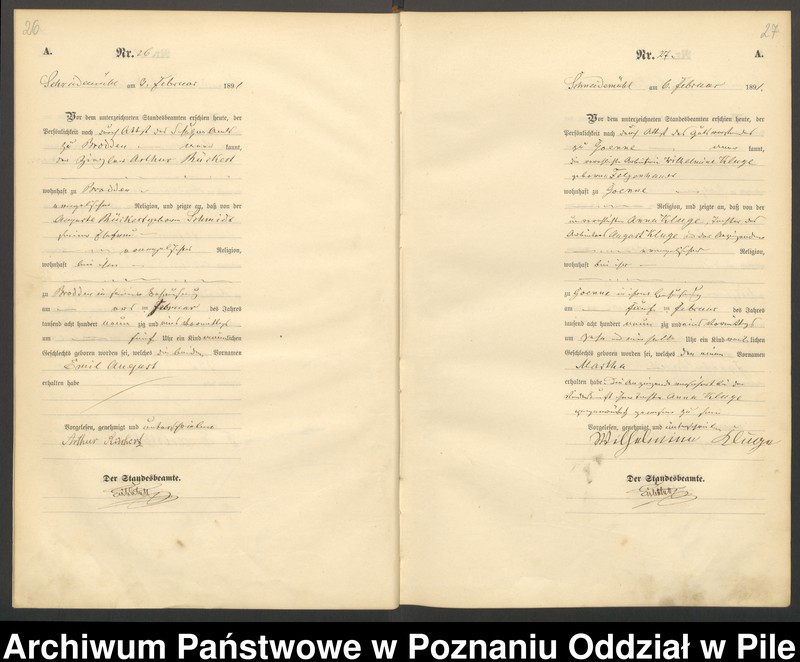 26
A. Nr. 26
Schneidemühl am 3. Februar 1891
Vor dem unterzeichneten Standesbeamten erschien heute, der
Persönlichkeit nach durch Attest des Schulzen Amts
zu Brodden kannt,
der Arthur Rückert
wohnhaft zu Brodden
evangelischer Religion, und zeigte an, daß von der
Auguste Rückert geborne Schmidt
seiner Ehefrau
evangelischer Religion,
wohnhaft bei ihm
zu Brodden in seiner Behausung
am Februar des Jahres
tausend acht hundert neun zig und eins Vormittags
um fünf Uhr ein Kind männlichen
Geschlechts geboren worden sei, welches die beiden Vornamen
Emil August
erhalten habe
Vorgelesen, genehmigt und unterschrieben
Arthur Rückert
Der Standesbeamte.
27
Nr. 27. A.
Schneidemühl am 6. Februar 1891.
Vor dem unterzeichneten Standesbeamten erschien heute, der
Persönlichkeit nach durch Attest des Gutsvorstandes
zu Goenne kannt,
die Wilhelmine Kluge
geborne
wohnhaft zu Goenne
Religion, und zeigte an, daß von der
unverehelichten Anna Kluge, Tochter des
Arbeiters August Kluge und der Anzeigenden
evangelischer Religion,
wohnhaft bei ihr
zu Goenne in ihrer Behausung
am fünf Februar des Jahres
tausend acht hundert neun zig und eins Vormittags
um zehn und einhalb Uhr ein Kind weiblichen
Geschlechts geboren worden sei, welches den Vornamen
Martha
erhalten habe. Die Anzeigende bei der
Niederkunft ihrer Tochter Anna Kluge
gegenwärtig gewesen zu sein
Vorgelesen, genehmigt und unterschrieben
Wilhelmine Kluge
Der Standesbeamte.
Archiwum Państwowe w Poznaniu Oddział w Pile